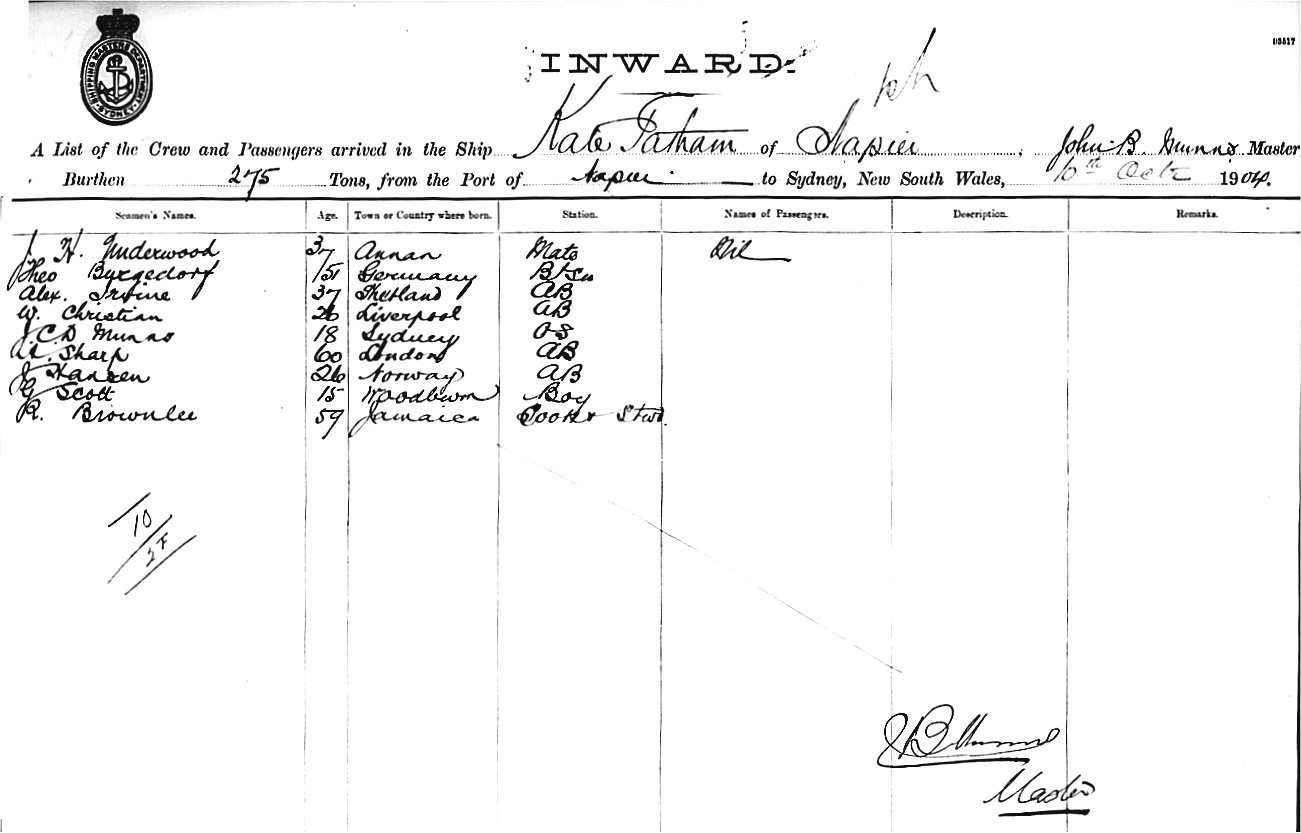 SHIPPING MASTER'S DEPARTMENT SYDNEY
INWARD.
A List of the Crew and Passengers arrived in the Ship Kate Tatham of Napier, John B. Munro Master
Burthen 275 Tons, from the Port of Napier to Sydney, New South Wales, 10th Octr 1904.
Seamen's Names. Age. Town or Country where born. Station. Names of Passengers. Description. Remarks.
J. H. Underwood 37 Annan Mate Nil
Theo Burgedorf Germany BtSn
Alex. Irvine 37 Shetland AB
W. Christian 26 Liverpool AB
J.C.D Munro 18 Sydney OS
A. Sharp 60 London AB
J Hansen 26 Norway AB
G Scott 15 Woodburn Boy
R. Brownlee 59 Jamaica Cook & Stwd.
10
27
JB Munro
Master